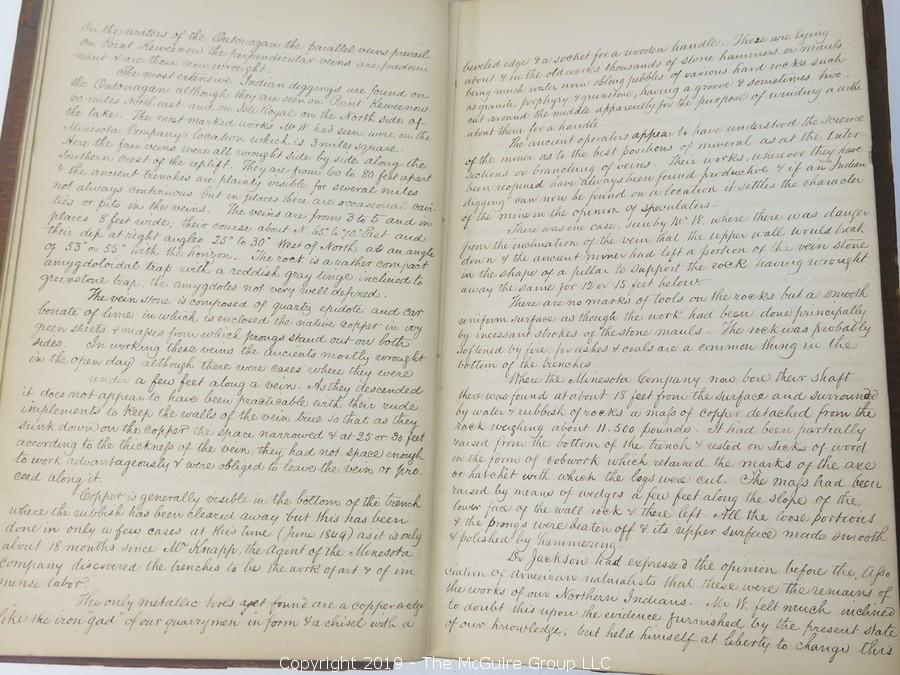 On the waters of the Ontonagan the parallel veins prevail
on Point Kewcenow the perpendicular veins are predomi
nant & are those now wrought.
The most extensive Indian diggings are found on
the Ontonagan although they are seen on Point Kewcenow
60 miles North east and on Isle Royal on the North side of
the lake. The most marked works Mr W. had seen were on the
Minesota Company's location which is 3 miles square.
Here the four veins were all wrought side by side along the
Southern crest of the uplift. They are from 60 to 80 feet apart
& the ancient trenches are plainly visible for several miles
not always continuous but in places there are occasional cavi-
ties or pits in the veins. The veins are from 3 to 5 and in
places 8 feet wide; their course about N 65° to 70° East and
their dip at right angles 25° to 30° West of North at an angle
of 53° or 55° with the horizon. The rock is a rather compact
amygdoloidal trap with a reddish gray tinge inclined to
greenstone trap, the amygdotes not very well defined.
The vein stone is composed of quartz epidote and car
bonate of lime in which is enclosed the native copper in
green sheets & masses from which prongs stand out on both
sides. In working these veins the ancients mostly wrought
in the open day although there were cases where they were
under a few feet along a vein. As they descended
it does not appear to have been practicable with their rude
implements to keep the walls of the vein true so that as they
sink down on the copper the space narrowed & at 25 or 30 feet
according to the thickness of the vein, they had not space enough
to work advantageously & were obliged to leave the vein or pro-
ceed along it.
Copper is generally visible in the bottom of the trench
where the rubbish has been cleared away but this has been
done in only a few cases at this time (June 1849) as it is only
about 18 months since Mr Knapp, the Agent of the Minesota
Company discovered the trenches to be the work of art & of im
mense labor.
The only metallic tools yet found are a copper wedge
like the iron "gad" of our quarrymen in form & a chisel with a
beveled edge & a socket for a wooden handle. There are lying
about & in the old works thousands of stone hammers or mauls
being much water worn oblong pebbles of various hard rocks such
as granite, porphyry & greenstone, having a groove & sometimes two
cut around the middle apparently for the purpose of winding a withe
about them for a handle.
The ancient operators appear to have understood the science
of the miner as to the best positions of mineral as at the Inter-
sections or branching of veins. Their works, wherever they have
been reopened have always been found productive & if an "Indian
digging" can now be found on a location it settles the character
of the mine in the opinion of speculators.
There was one case, seen by Mr W. where there was danger
from the inclination of the vein that the upper wall would break
down & the ancient miner had left a portion of the vein stone
in the shape of a pillar to support the rock having wrought
away the same for 12 or 15 feet below.
There are no marks of tools on the rocks but a smooth
uniform surface as though the work had been done principally
by incessant strokes of the stone mauls. The rock was probably
softened by fire, for ashes & coals are a common thing in the
bottom of the trenches.
Where the Minesota Company now bore their shaft
there was found at about 18 feet from the surface and surrounded
by water & rubbish of rocks a mass of copper detached from the
rock weighing about 11.500 pounds. It had been partially
raised from the bottom of the trench & rested on sticks of wood
in the form of cobwork which retained the marks of the axe
or hatchet with which the logs were cut. The mass had been
raised by means of wedges a few feet along the slope of the
lower face of the wall rock & there left. All the loose portions
& the prongs were beaten off & its upper surface made smooth
& polished by hammering.
Dr Jackson had expressed the opinion before the Asso
ciation of American naturalists that these were the remains of
the works of our Northern Indians. Mr W. felt much inclined
to doubt this upon the evidence furnished by the present state
of our knowledge, but held himself at liberty to change this
Copyright 2019 - The McGuire Group LLC